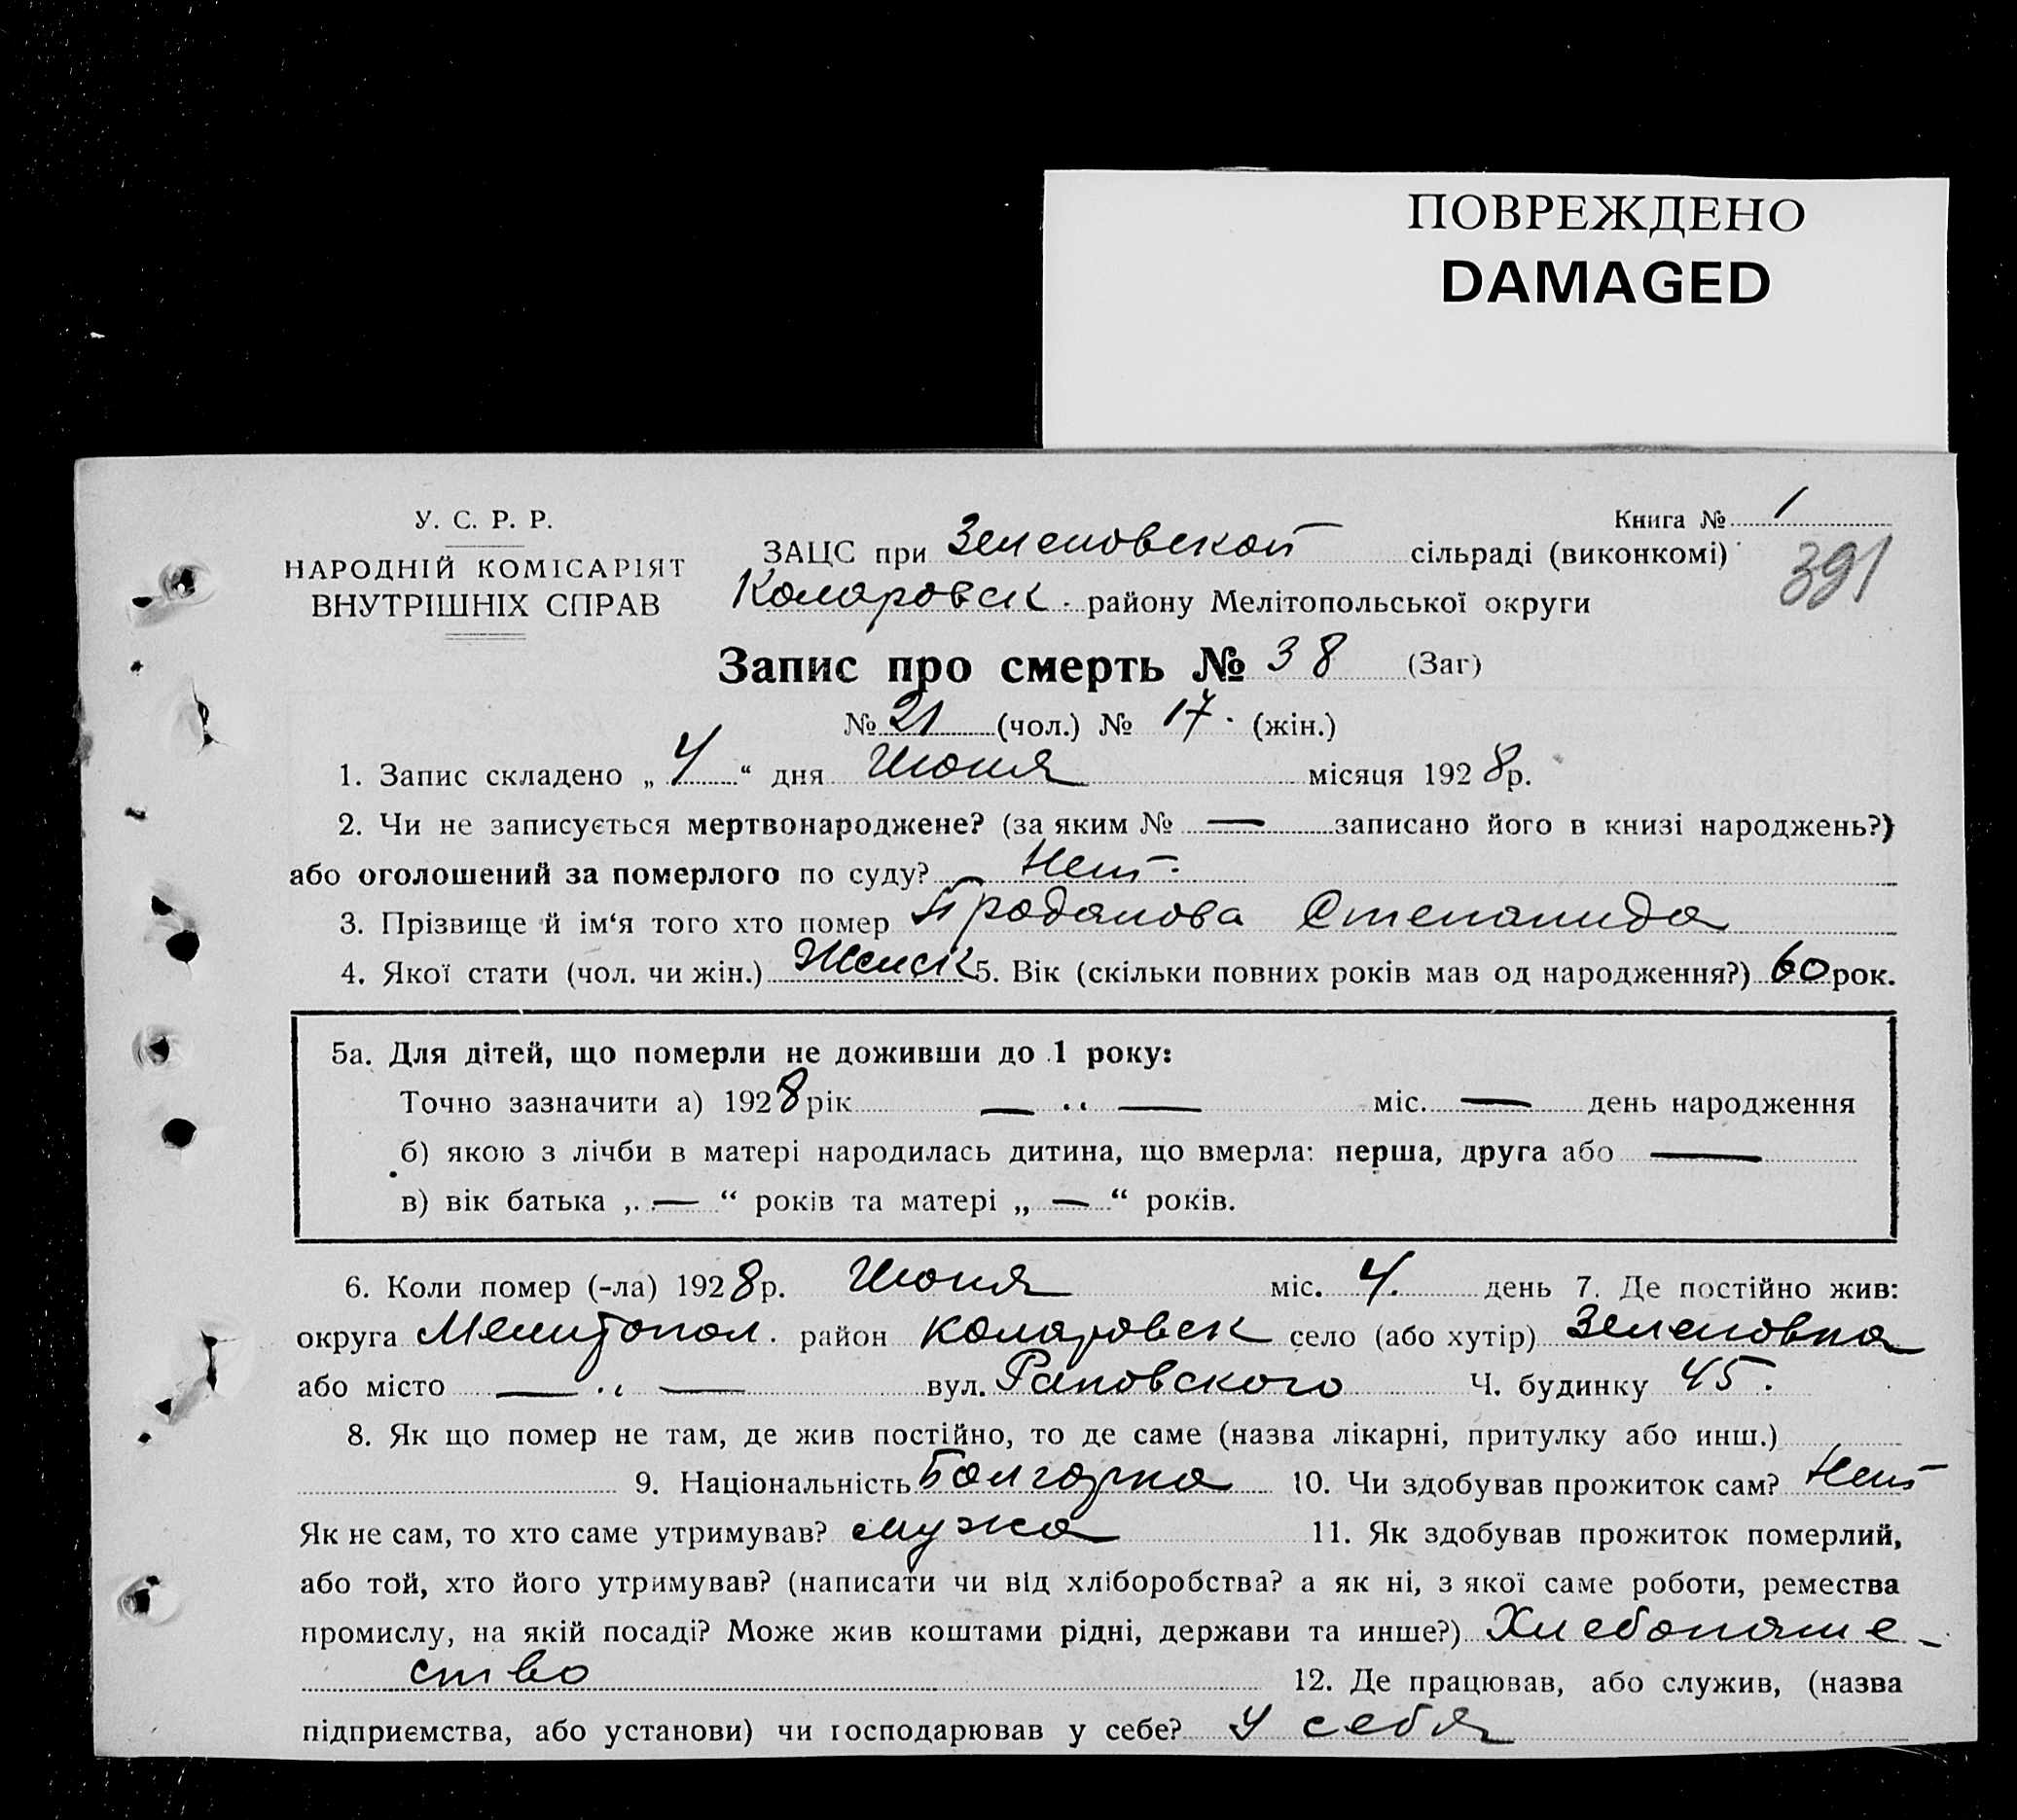 ПОВРЕЖДЕНО
DAMAGED
У. С. Р. Р.
НАРОДНІЙ КОМІСАРІЯТ
ВНУТРІШНІХ СПРАВ
Книга № 1
391
ЗАЦС при Зеленовской сільраді (виконкомі)
Коларовск. району Мелітопольської округи
Запис про смерть № 38 (Заг)
№ 21 (чол.) № 17. (жін.)
1. Запис складено „ 4 “ дня Июня місяця 1928 р.
2. Чи не записується мертвонароджене? (за яким № — записано його в книзі народжень?)
або оголошений за померлого по суду? Нет.
3. Прізвище й ім‘я того хто помер Проданова Степанида
4. Якої стати (чол. чи жін.) Женск 5. Вік (скільки повних років мав од народження?) 60 рок.
5а. Для дітей, що померли не доживши до 1 року:
Точно зазначити а) 1928 рік — „ — міс. — день народження
б) якою з лічби в матері народилась дитина, що вмерла: перша, друга або —
в) вік батька „ — “ років та матері „ — “ років.
6. Коли помер (-ла) 1928 р. Июня міс. 4. день 7. Де постійно жив:
округа Мелитопол. район Коларовск село (або хутір) Зеленовка
або місто — „ — вул. Ч. будинку 45.
8. Як що помер не там, де жив постійно, то де саме (назва лікарні, притулку або инш.)
9. Національність Болгарка 10. Чи здобував прожиток сам? Нет
Як не сам, то хто саме утримував? мужа 11. Як здобував прожиток померлий,
або той, хто його утримував? (написати чи від хліборобства? а як ні, з якої саме роботи, ремества
промислу, на якій посаді? Може жив коштами рідні, держави та инше?) Хлебопаше-
ство 12. Де працював, або служив, (назва
підприємства, або установи) чи господарював у себе? У себя